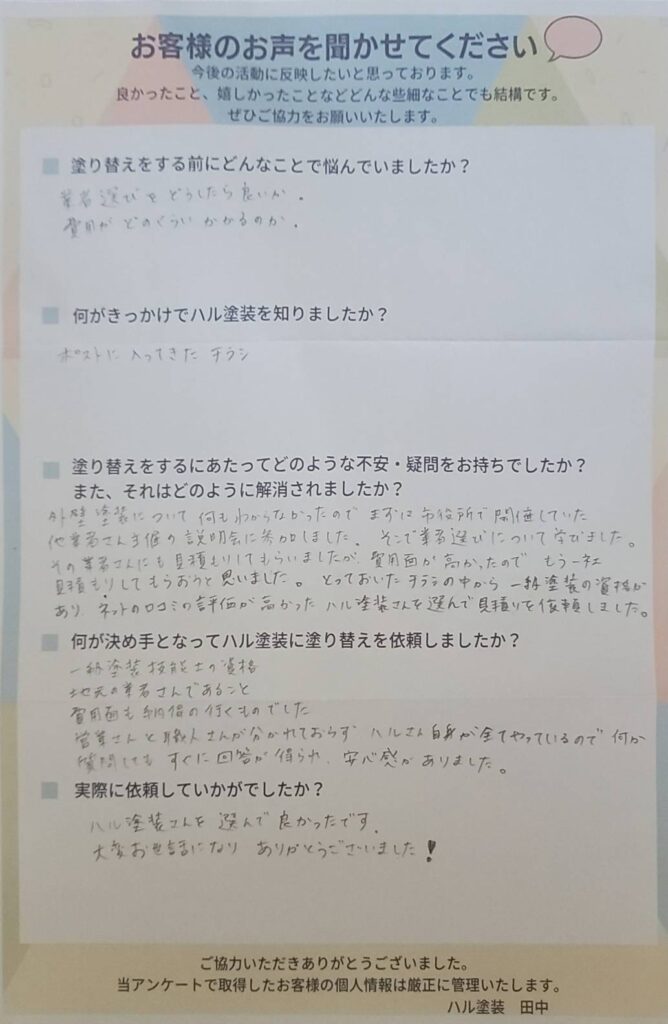 お客様のお声を聞かせてください
今後の活動に反映したいと思っております。
良かったこと、嬉しかったことなどどんな些細なことでも結構です。
ぜひご協力をお願いいたします。
塗り替えをする前にどんなことで悩んでいましたか？
業者選びをどうしたら良いか。
費用がどのぐらいかかるのか。
何がきっかけでハル塗装を知りましたか？
ポストに入ってきたチラシ
塗り替えをするにあたってどのような不安・疑問をお持ちでしたか？
また、それはどのように解消されましたか？
外壁塗装について何もわからなかったのでまずは市役所で開催していた
他業者さん主催の説明会に参加しました。そこで業者選びについて学びました。
その業者さんにも見積もりしてもらいましたが、費用面が高かったのでもう一社
見積もりしてもらおうと思いました。とっておいたチラシの中から一級塗装の資格が
あり、ネットの口コミの評価が高かったハル塗装さんを選んで見積りを依頼しました。
何が決め手となってハル塗装に塗り替えを依頼しましたか？
一級塗装技能士の資格
地元の業者さんであること
費用面も納得の行くものでした
営業さんと職人さんが分かれておらずハルさん自身が全てやっているので何か
質問してもすぐに回答が得られ、安心感がありました。
実際に依頼していかがでしたか？
ハル塗装さんを選んで良かったです。
大変お世話になりありがとうございました！
ご協力いただきありがとうございました。
当アンケートで取得したお客様の個人情報は厳正に管理いたします。
ハル塗装 田中